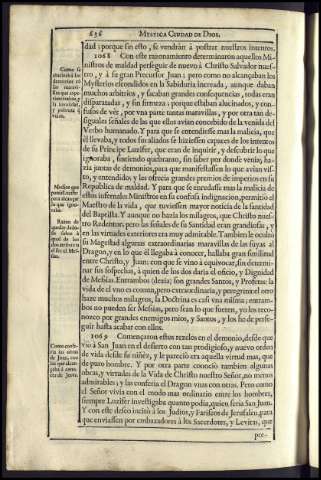 636 MYSTICA CIUDAD DE DIOS.
dad; porque sin esto, se vendràn à postrar nuestros intentos.
1068 Con este razonamiento determinaron aquellos Mi-
nistros de maldad perseguir de nuevo à Christo Salvador nues-
tro, y à su gran Precursor Juan: pero como no alcançaban los
Mysterios escondidos en la Sabiduria increada, aunque daban
muchos arbitrios, y sacaban grandes consequencias, todas eran
disparatadas, y sin firmeza: porque estaban alucinados, y con-
fusos de vèr, por vna parte tantas maravillas, y por otra tan de-
siguales señales de las que ellos avian concebido de la venida del
Verbo humanado. Y para que se entendiesse mas la malicia, que
èl llevaba, y todos sus aliados se hiziessen capaces de los intentos
de su Principe Luzifer, que eran de inquirir, y descubrir lo que
ignoraba, sintiendo quebranto, sin saber por donde venia, ha-
zia juntas de demonios, para que manifestassen lo que avian vis-
to, y entendido; y les ofrecia grandes premios de imperios en su
Republica de maldad. Y para que se enredasse mas la malicia de
estos infernales Ministros en su confusa indignacion, permitiò el
Maestro de la vida, que tuviessen mayor noticia de la santidad
del Baptista. Y aunque no hazia los milagros, que Christo nues-
tro Redemptor: pero las señales de su Santidad eran grandiosas, y
en las virtudes exteriores era muy admirable. Tambien le ocultò
su Magestad algunas extraordinarias maravillas de las suyas al
Dragon, y en lo que èl llegaba à conocer, hallaba gran similitud
entre Christo, y Juan: con que se vino à equivocar, sin determi-
nar sus sospechas, à quien de los dos daria el oficio, y Dignidad
de Messias. Entrambos (dezia) son grandes Santos, y Profetas: la
vida de el vno es comun, pero extraordinaria, y peregrina: el otro
haze muchos milagros, la Doctrina es casi vna misma: entram-
bos no pueden ser Messias, pero sean lo que fueren, yo los reco-
nozco por grandes enemigos mios, y Santos, y los he de perse-
guir hasta acabar con ellos.
1069 Començaron estos rezelos en el demonio, desde que
viò à San Juan en el desierto con tan prodigioso, y nuevo orden
de vida desde su niñèz, y le pareciò era aquella virtud mas, que
de puro hombre. Y por otra parte conociò tambien algunas
obras, y virtudes de la Vida de Christo nuestro Señor, no menos
admirables; y las conferia el Dragon vnas con otras. Pero como
el Señor vivia con el modo mas ordinario entre los hombres,
siempre Luzifer investigaba quanto podia, quien seria San Juan.
Y con este deseo incitò à los Judios, y Fariseos de Jerusalen, para
que enviassen por embaxadores à los Sacerdotes, y Levitas, que
pre-